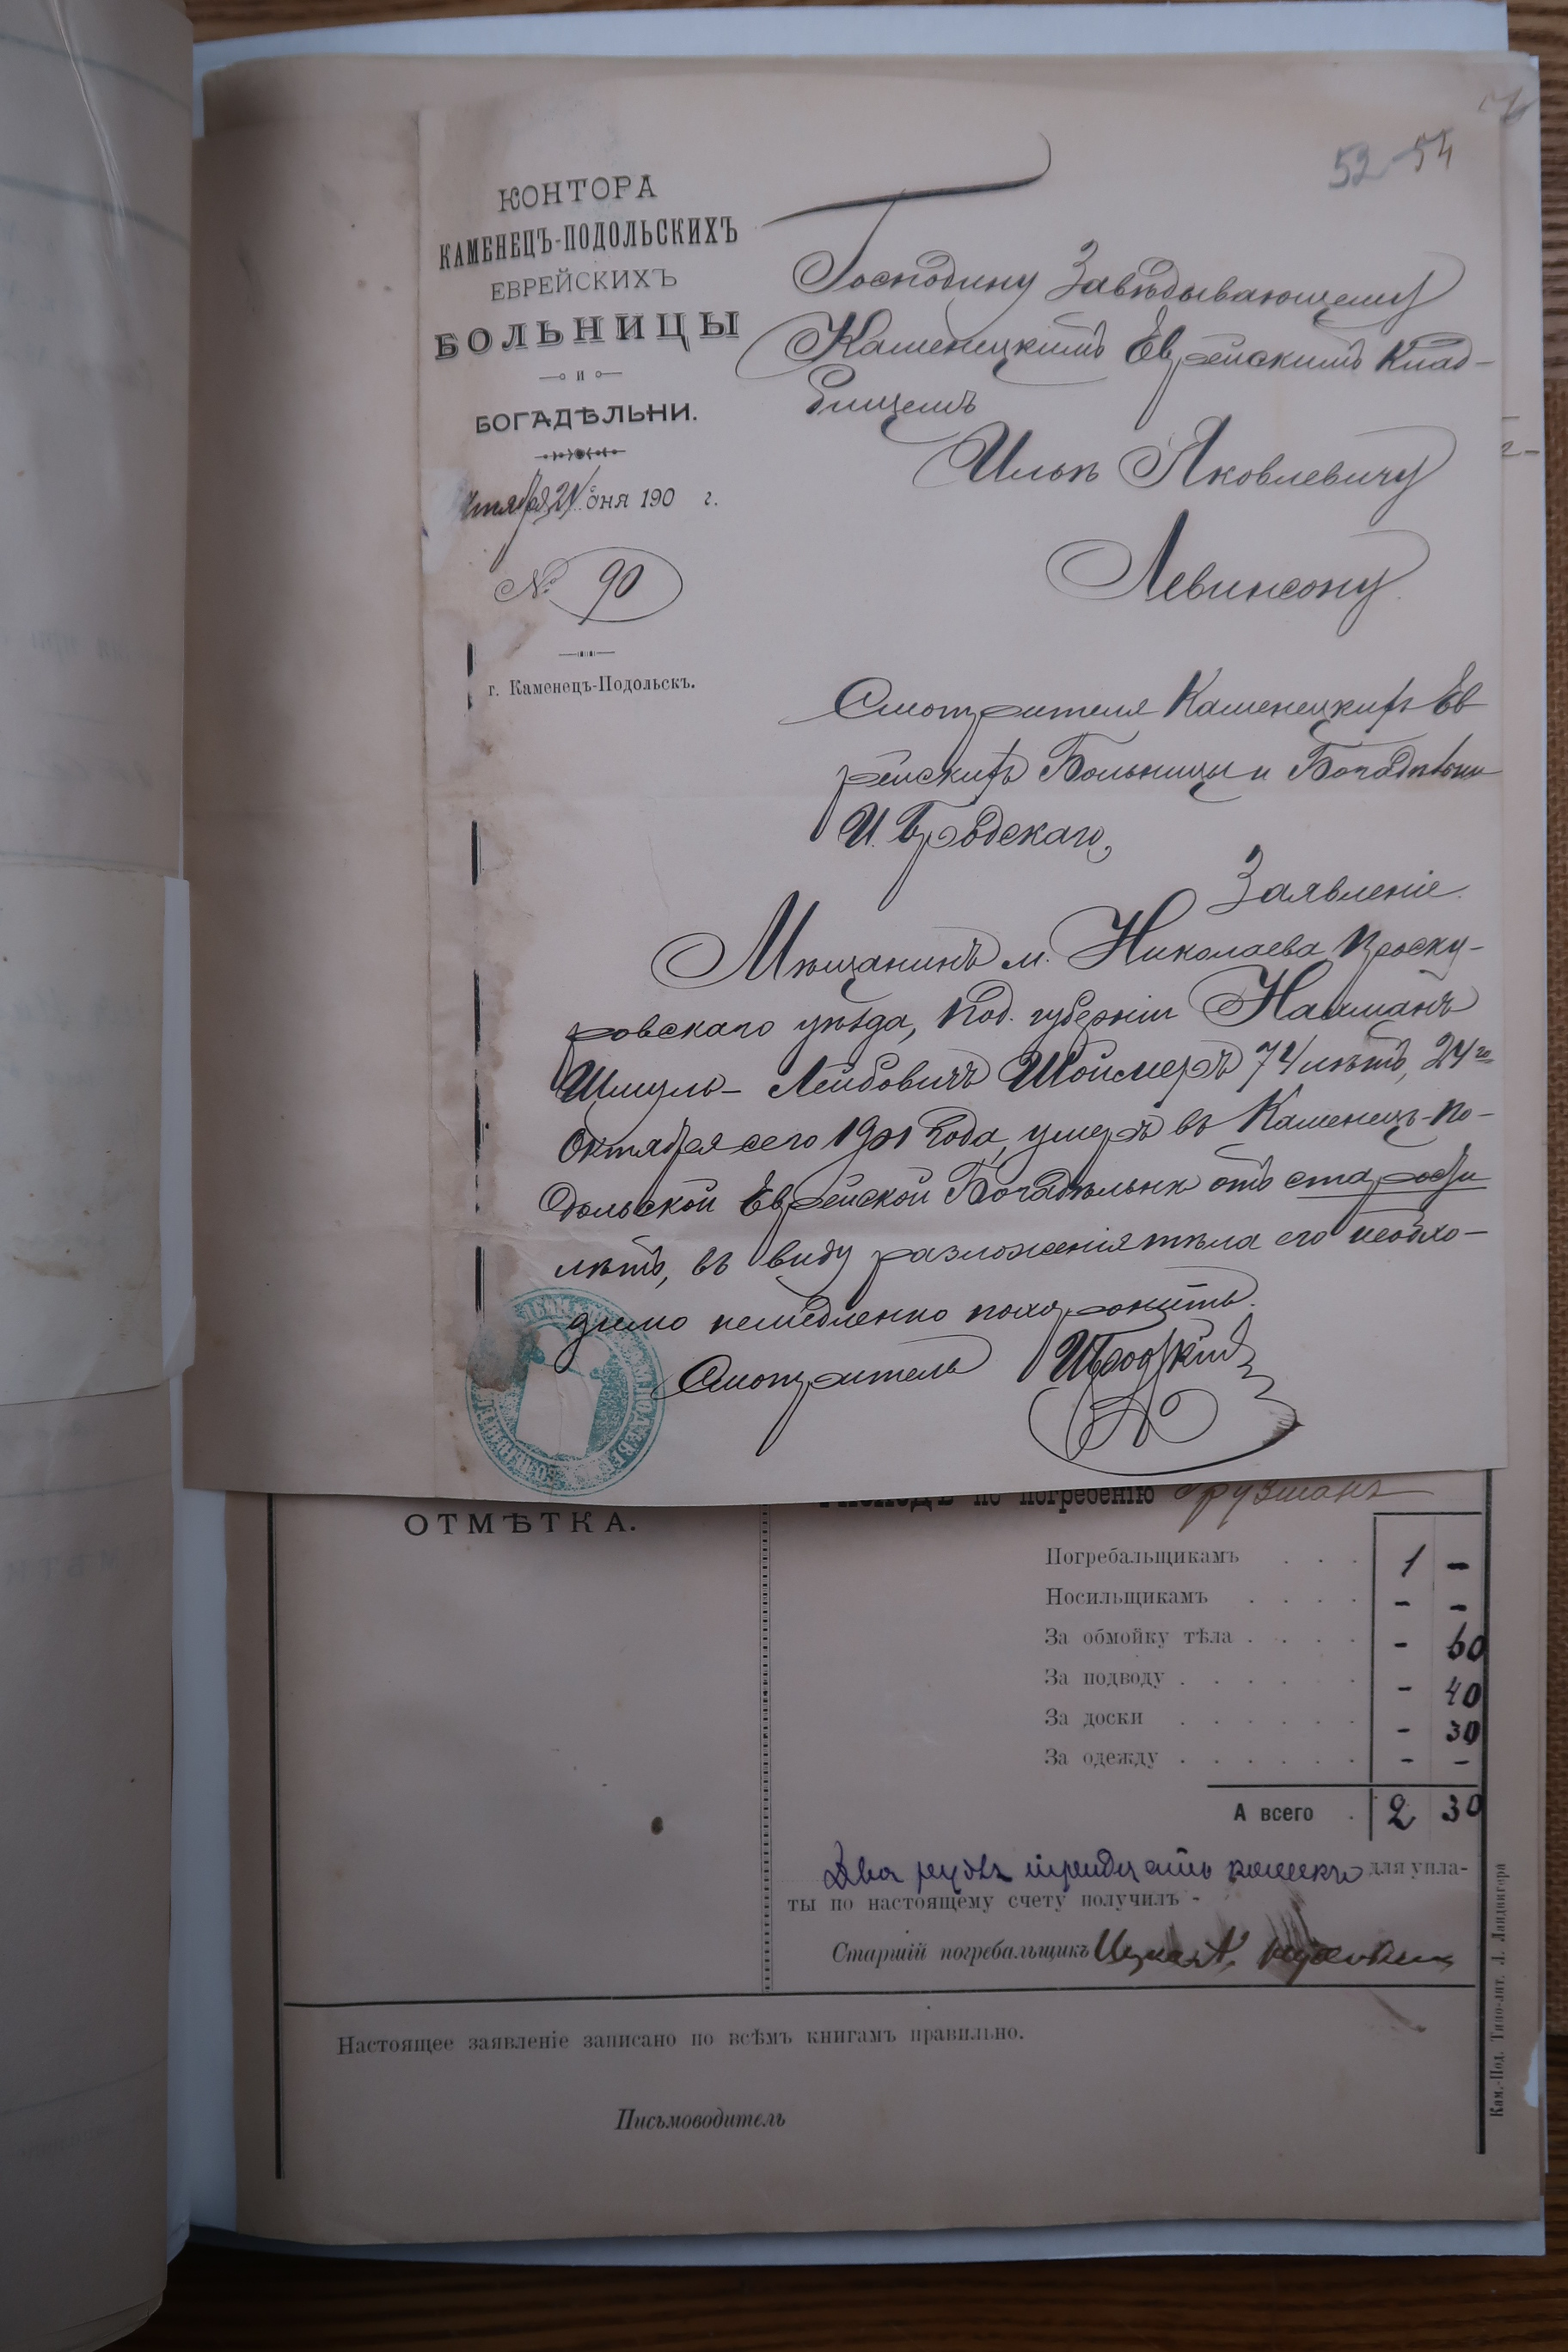 52 54
КОНТОРА
КАМЕНЕЦЪ-ПОДОЛЬСКИХЪ
ЕВРЕЙСКИХЪ
БОЛЬНИЦЫ
и
БОГАДѢЛЬНИ.
Октября 24 дня 190 г.
№ 90
г. Каменецъ-Подольскъ.
Господину Завѣдывающему
Каменецкимъ Еврейскимъ Клад-
бищемъ
Ильѣ Яковлевичу
Левинсону.
Смотрителя Каменецкихъ Ев
рейскихъ Больницы и Богадѣльни
И. Бродскаго,
Заявленіе.
Мѣщанинъ м. Николаева Проску-
ровскаго уѣзда, Под. губерніи Нахманъ
Шмуль-Лейбовичъ Шойхмеръ 74 лѣтъ, 24го
Октября сего 1901 года, умеръ въ Каменецъ-По-
дольской Еврейской Богадѣльнѣ отъ старости
лѣтъ, въ виду разложенія тѣла его необхо-
димо немедленно похоронить.
Смотритель ИБродскій
по погребенію Грузманъ
ОТМѢТКА.
Погребальщикамъ . . . 1 -
Носильщикамъ . . . . - -
За обмойку тѣла . . . . - 60
За подводу . . . . . - 40
За доски . . . . . . - 30
За одежду . . . . . . - -
А всего . 2 30
Два рубля тридцать копѣекъ для упла-
ты по настоящему счету получилъ -
Старшій погребальщикъ
Настоящее заявленіе записано по всѣмъ книгамъ правильно.
Письмоводитель
Кам.-Под. Типо-лит. Л. Ландвигера